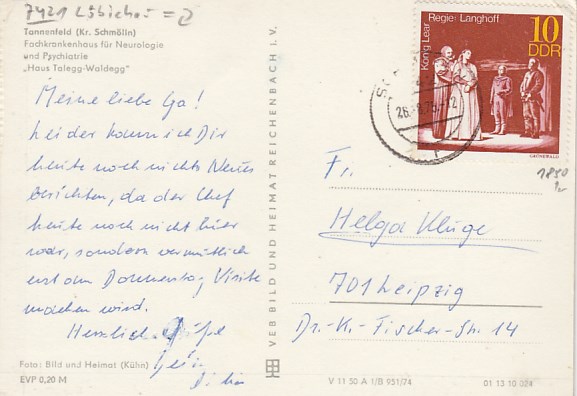 7421 Löbichau
Tannenfeld (Kr. Schmölln)
Fachkrankenhaus für Neurologie
und Psychiatrie
„Haus Talegg-Waldegg"
Meine liebe Ga!
leider kann ich Dir
heute noch nichts Neues
berichten, da der Chef
heute noch nicht hier
war, sondern vermutlich
erst am Donnerstag Visite
machen wird.
Herzliche Grüße
Foto: Bild und Heimat (Kühn)
EVP 0,20 M
VEB BILD UND HEIMAT REICHENBACH I. V.
König Lear
Regie: Langhoff
10
DDR
1890
Fr.
Helga Kluge
701 Leipzig
Dr.-K.-Fischer-Str. 14
V 11 50 A 1/B 951/74
01 13 10 024